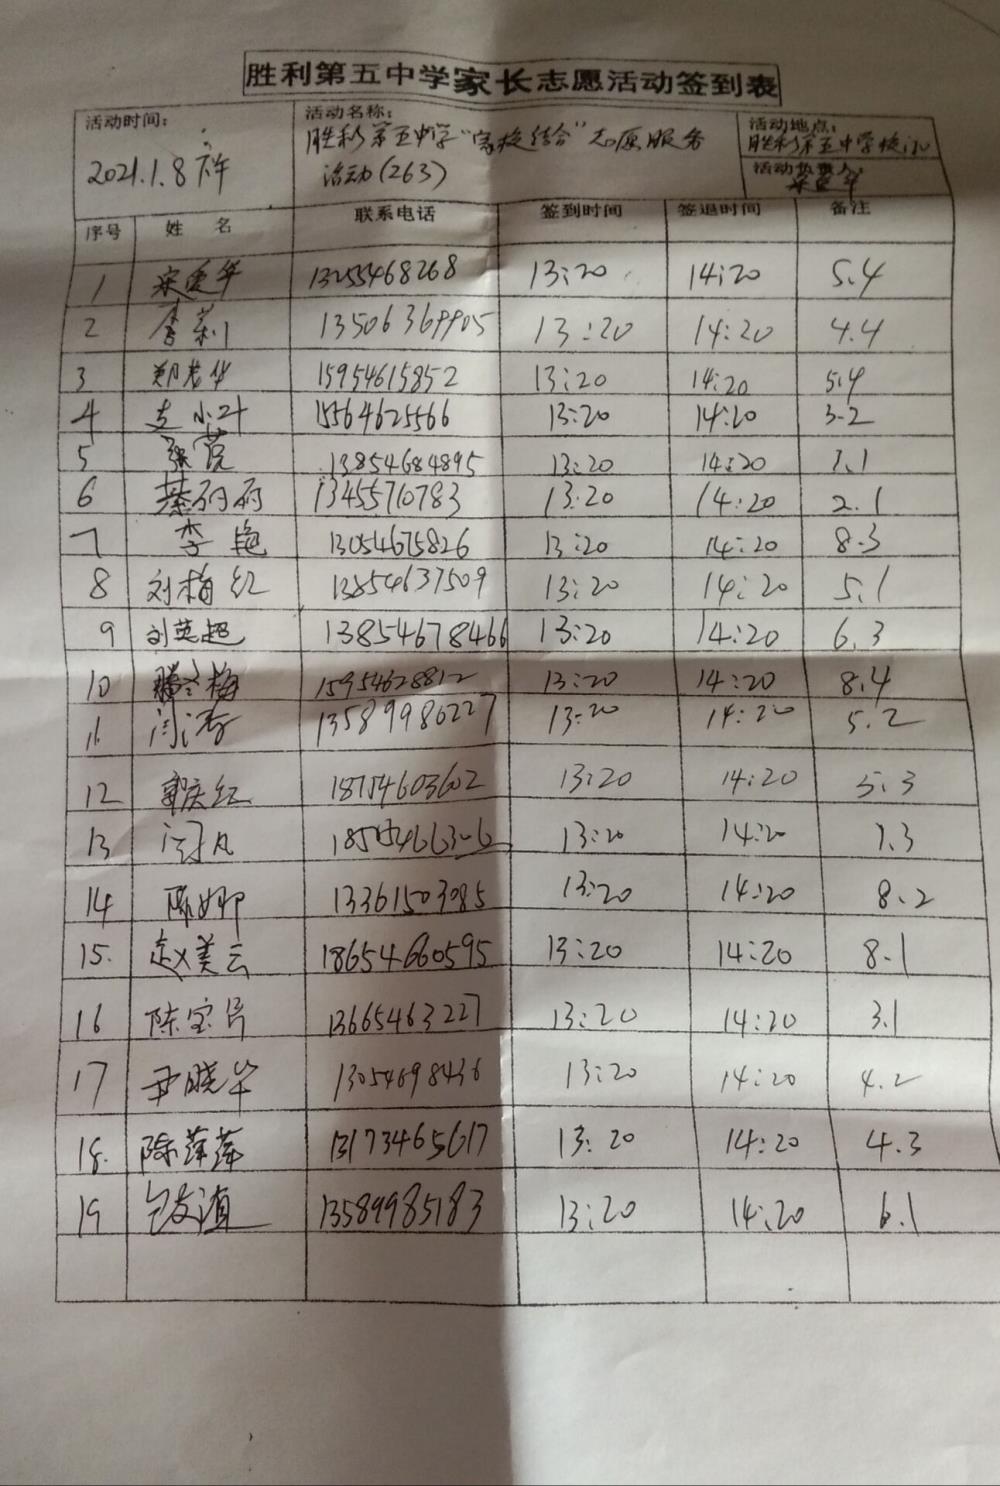 胜利第五中学家长志愿活动签到表
活动时间: 活动名称: 活动地点:
2021.1.8 下午 胜利第五中学"家校结合"志愿服务 胜利第五中学校门
活动(263) 活动负责人: 宋爱华
序号 姓 名 联系电话 签到时间 签退时间 备注
1 宋爱华 13255468268 13:20 14:20 5.4
2 李莉 13506369905 13:20 14:20 4.4
3 郑若华 15954615852 13:20 14:20 5.4
4 支小叶 15564625566 13:20 14:20 3.2
5 张莞 13854684895 13:20 14:20 7.1
6 13455710783 13:20 14:20 2.1
7 李艳 13054675826 13:20 14:20 8.3
8 刘梅红 13854637509 13:20 14:20 5.1
9 刘英超 13854678466 13:20 14:20 6.3
10 梅 15954628812 13:20 14:20 8.4
11 闫涛 13589986227 13:20 14:20 5.2
12 郭庆红 18754603602 13:20 14:20 5.3
13 闫凡 13:20 14:20 7.3
14 陈娜 13361503085 13:20 14:20 8.2
15. 赵美云 18654660595 13:20 14:20 8.1
16 陈宝 13665463227 13:20 14:20 3.1
17 尹晓华 13054698436 13:20 14:20 4.2
18. 陈萍萍 13173465617 13:20 14:20 4.3
19 13589985183 13:20 14:20 6.1